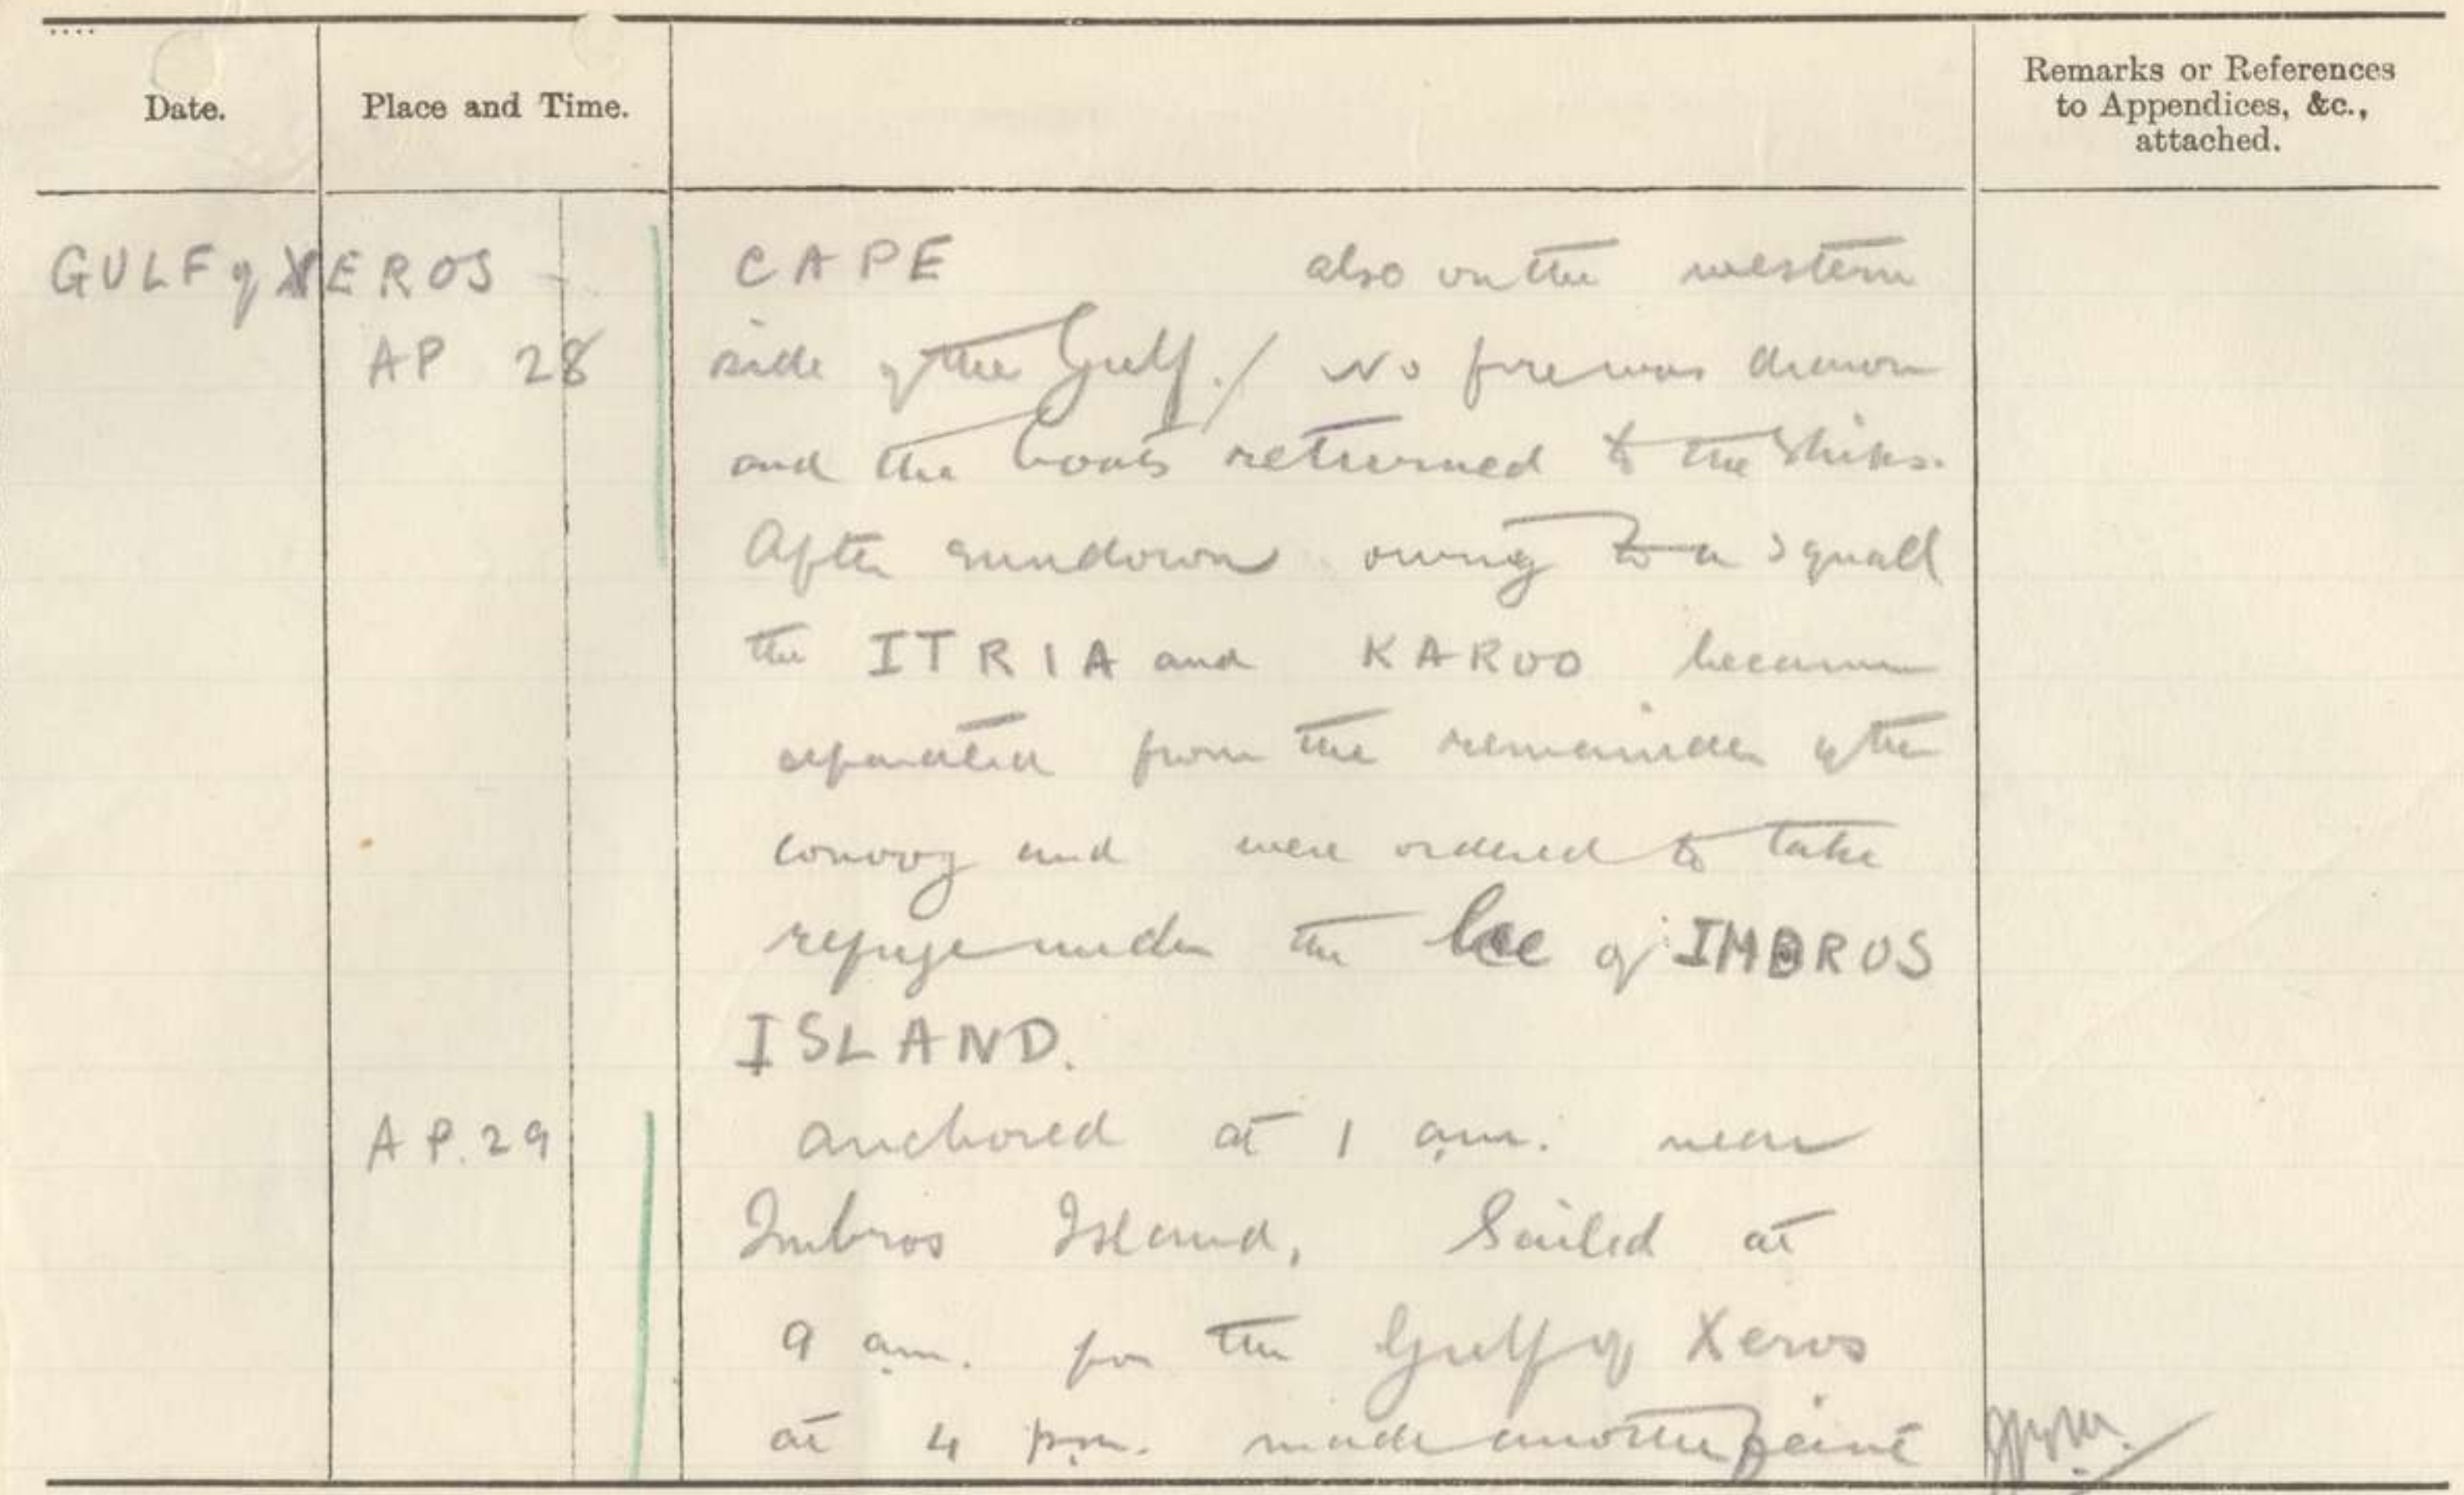 Date.
Place and Time.
Remarks or References
to Appendices, &c.,
attached.
GULF of XEROS
CAPE also on the western
AP 28
side of the Gulf./ No fire was drawn
and the boats returned to the ships.
After sundown owing to a squall
the ITRIA and KAROO became
separated from the remainder of the
convoy and were ordered to take
refuge under the lee of IMBROS
ISLAND.
AP. 29
anchored at 1 am. near
Imbros Island, Sailed at
9 am. for the Gulf of Xeros
at 4 pm. made another feint